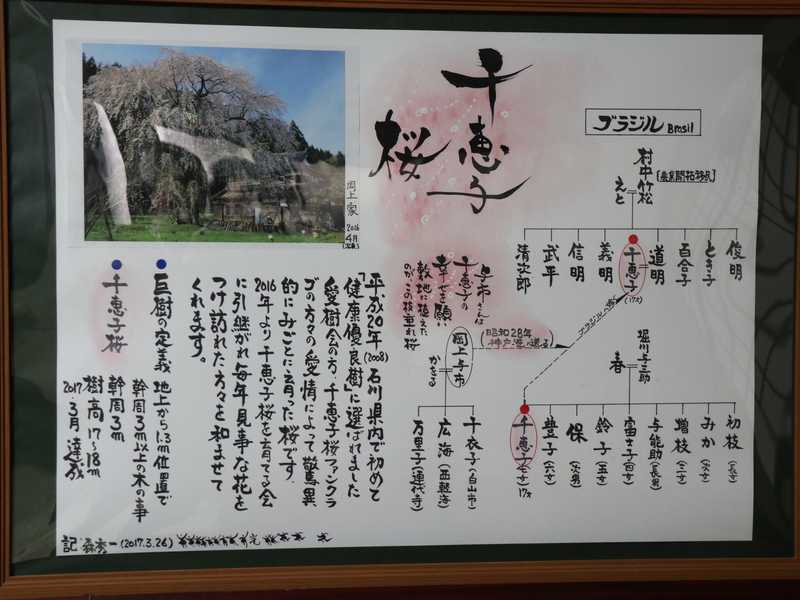 千恵子
桜
ブラジル Brasil
村中竹松
えと
俊明
とき子
百合子
道明
千恵子
(17才)
義明
信明
武平
清次郎
ブラジルへ嫁ぐ
堀川与三助
春
初枝(長女)
みか(次女)
増枝(二女)
与能助(長男)
富士子(四女)
鈴子(五女)
保(次男)
豊子(六女)
千恵子(七女)17才
与市さんは
千恵子の
幸せを願い
敷地に植えた
のがこの枝垂れ桜
昭和28年
神戸港へ送る
岡上与市
かきる
千衣子(白山市)
広海(西軽海)
万里子(蓮代寺)
岡上家
2016
4月
平成20年(2008)石川県内で初めて
「健康優良樹」に選ばれました
愛樹会の方、千恵子桜ファンクラ
ブの方々の愛情によって驚異
的にみごとに育った桜です。
2016年より千恵子桜を育てる会
に引継がれ毎年見事な花を
つけ訪れた方々を和ませて
くれます。
巨樹の定義 地上から1.3m位置で
幹周3m以上の木の事
千恵子桜 幹周3m
樹高17〜18m
2017.3月達成
記 森秀一(2017.3.26)